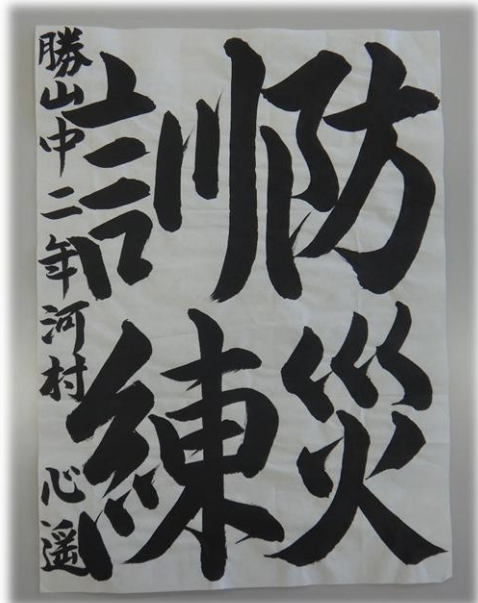 防災
訓練
勝山中二年河村 心遥